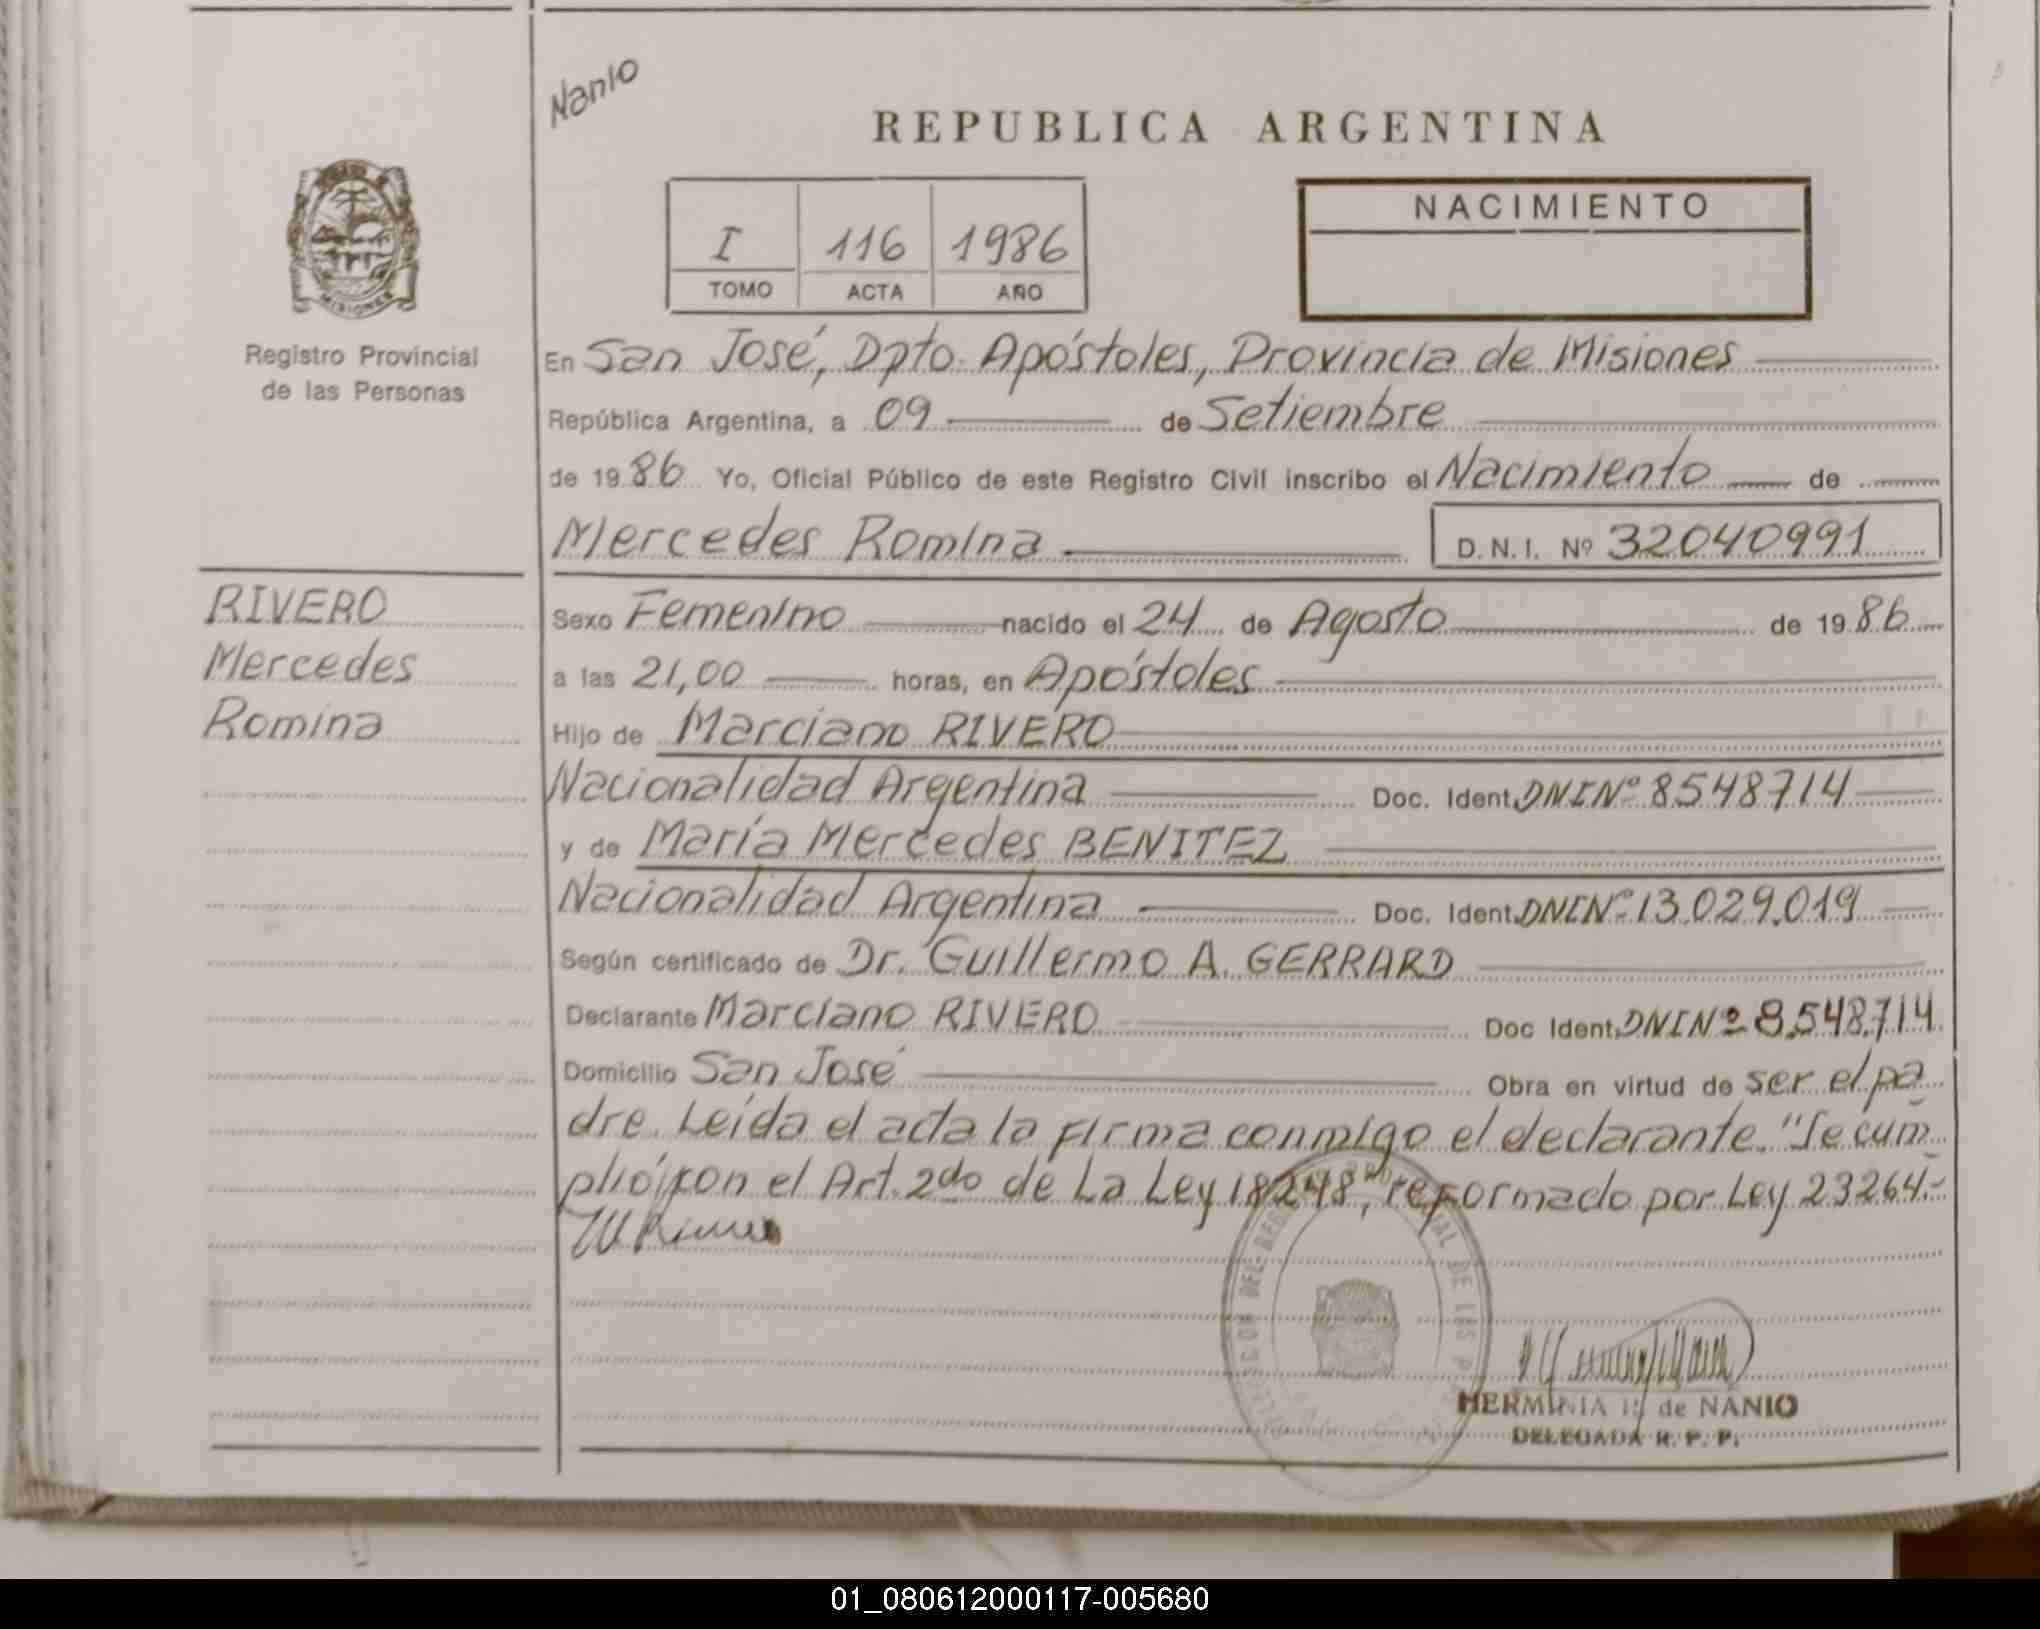 Nanio
REPUBLICA ARGENTINA
NACIMIENTO
I 116 1986
TOMO ACTA AÑO
MISIONES
Registro Provincial
de las Personas
En San José, Dpto. Apóstoles, Provincia de Misiones
República Argentina, a 09 de Setiembre
de 1986 Yo, Oficial Público de este Registro Civil inscribo el Nacimiento de
Mercedes Romina D.N.I. Nº 32040991
RIVERO
Mercedes
Romina
Sexo Femenino nacido el 24 de Agosto de 1986
a las 21,00 horas, en Apóstoles
Hijo de Marciano RIVERO
Nacionalidad Argentina Doc. Ident. DNI Nº 8548714
y de María Mercedes BENITEZ
Nacionalidad Argentina Doc. Ident. DNI Nº 13.029.019
Según certificado de Dr. Guillermo A. GERRARD
Declarante Marciano RIVERO Doc Ident. DNI Nº 8.548.714
Domicilio San José Obra en virtud de ser el pa
dre. Leída el acta la firma conmigo el declarante. "Se cum
plió con el Art. 2do de La Ley 18248", reformado por Ley 23264.-
HERMINIA de NANIO
DELEGADA R. P. P.
01_080612000117-005680